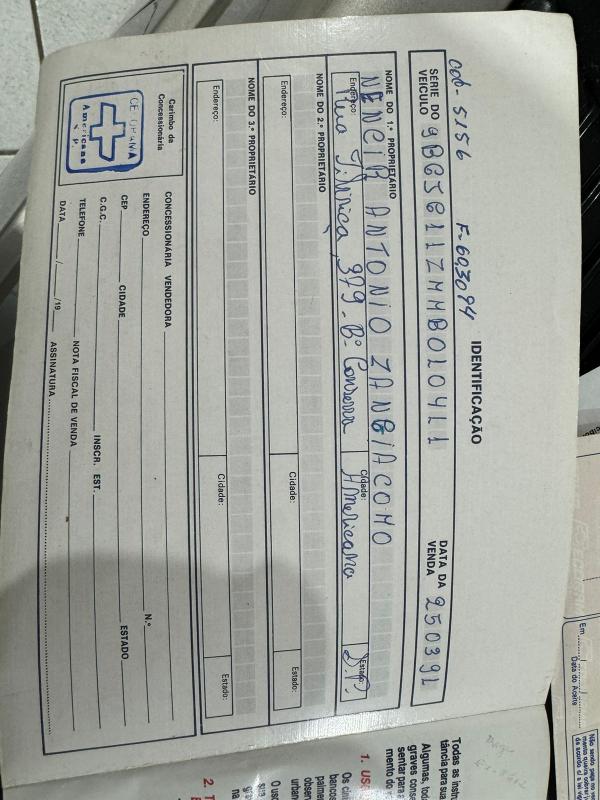 cod- 5156 F- 603094
IDENTIFICAÇÃO
SÉRIE DO VEÍCULO 9BG5E11ZMMB020421 DATA DA VENDA 250392
NOME DO 1.º PROPRIETÁRIO
NENCIR ANTONIO ZANGIACOMO
Endereço: Rua 379 - Bº Conserva Cidade: Americana Estado: S.P.
NOME DO 2.º PROPRIETÁRIO
Endereço: Cidade: Estado:
NOME DO 3.º PROPRIETÁRIO
Endereço: Cidade: Estado:
Carimbo da Concessionária
Americana
S.P.
CONCESSIONÁRIA VENDEDORA
ENDEREÇO N.º
CEP CIDADE ESTADO
C.G.C. INSCR. EST.
TELEFONE NOTA FISCAL DE VENDA
DATA / /19 ASSINATURA
Todas as instr
tância para sua
Algumas, tod
graves cons
sentar para
mento do
1. US
Os cin
bancos
palme
obser
urban
O uso
sua
gra
na
2. T
Em
Data do Aceite
Não sendo paga no ve